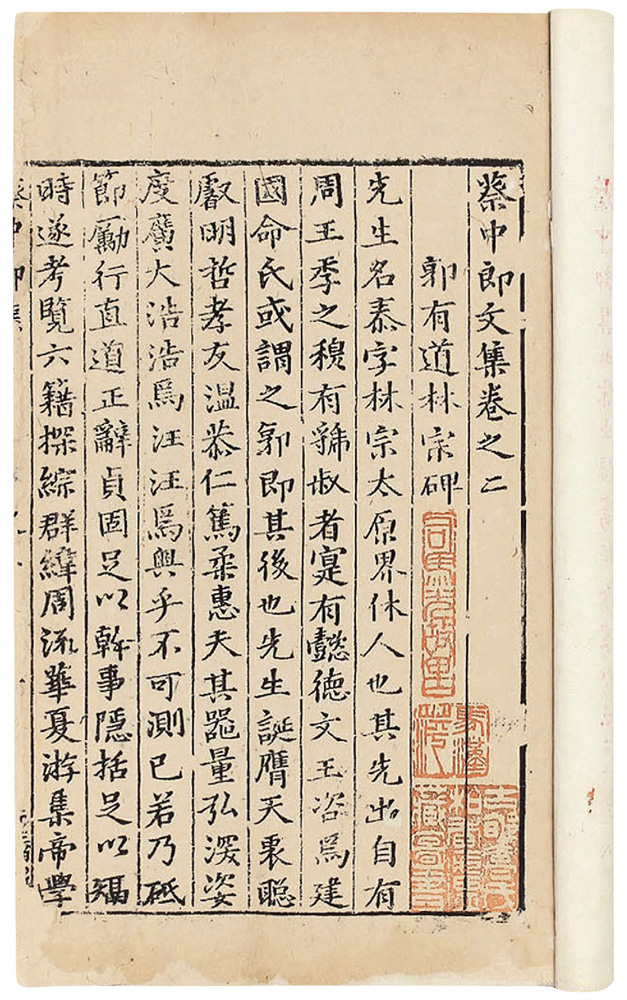 蔡中郎文集卷之二
郭有道林宗碑
先生名泰字林宗太原界休人也其先出自有
周王季之穆有虢叔者寔有懿德文王咨焉建
國命氏或謂之郭即其後也先生誕膺天衷聡
叡明哲孝友温恭仁篤柔惠夫其噐量弘深姿
度廣大浩浩焉汪汪焉奧乎不可測已若乃砥
節勵行直道正辭貞固足以幹事隱括足以矯
時遂考覽六籍探綜群緯周流華夏游集帝學
蔡中郎集
司馬光故里